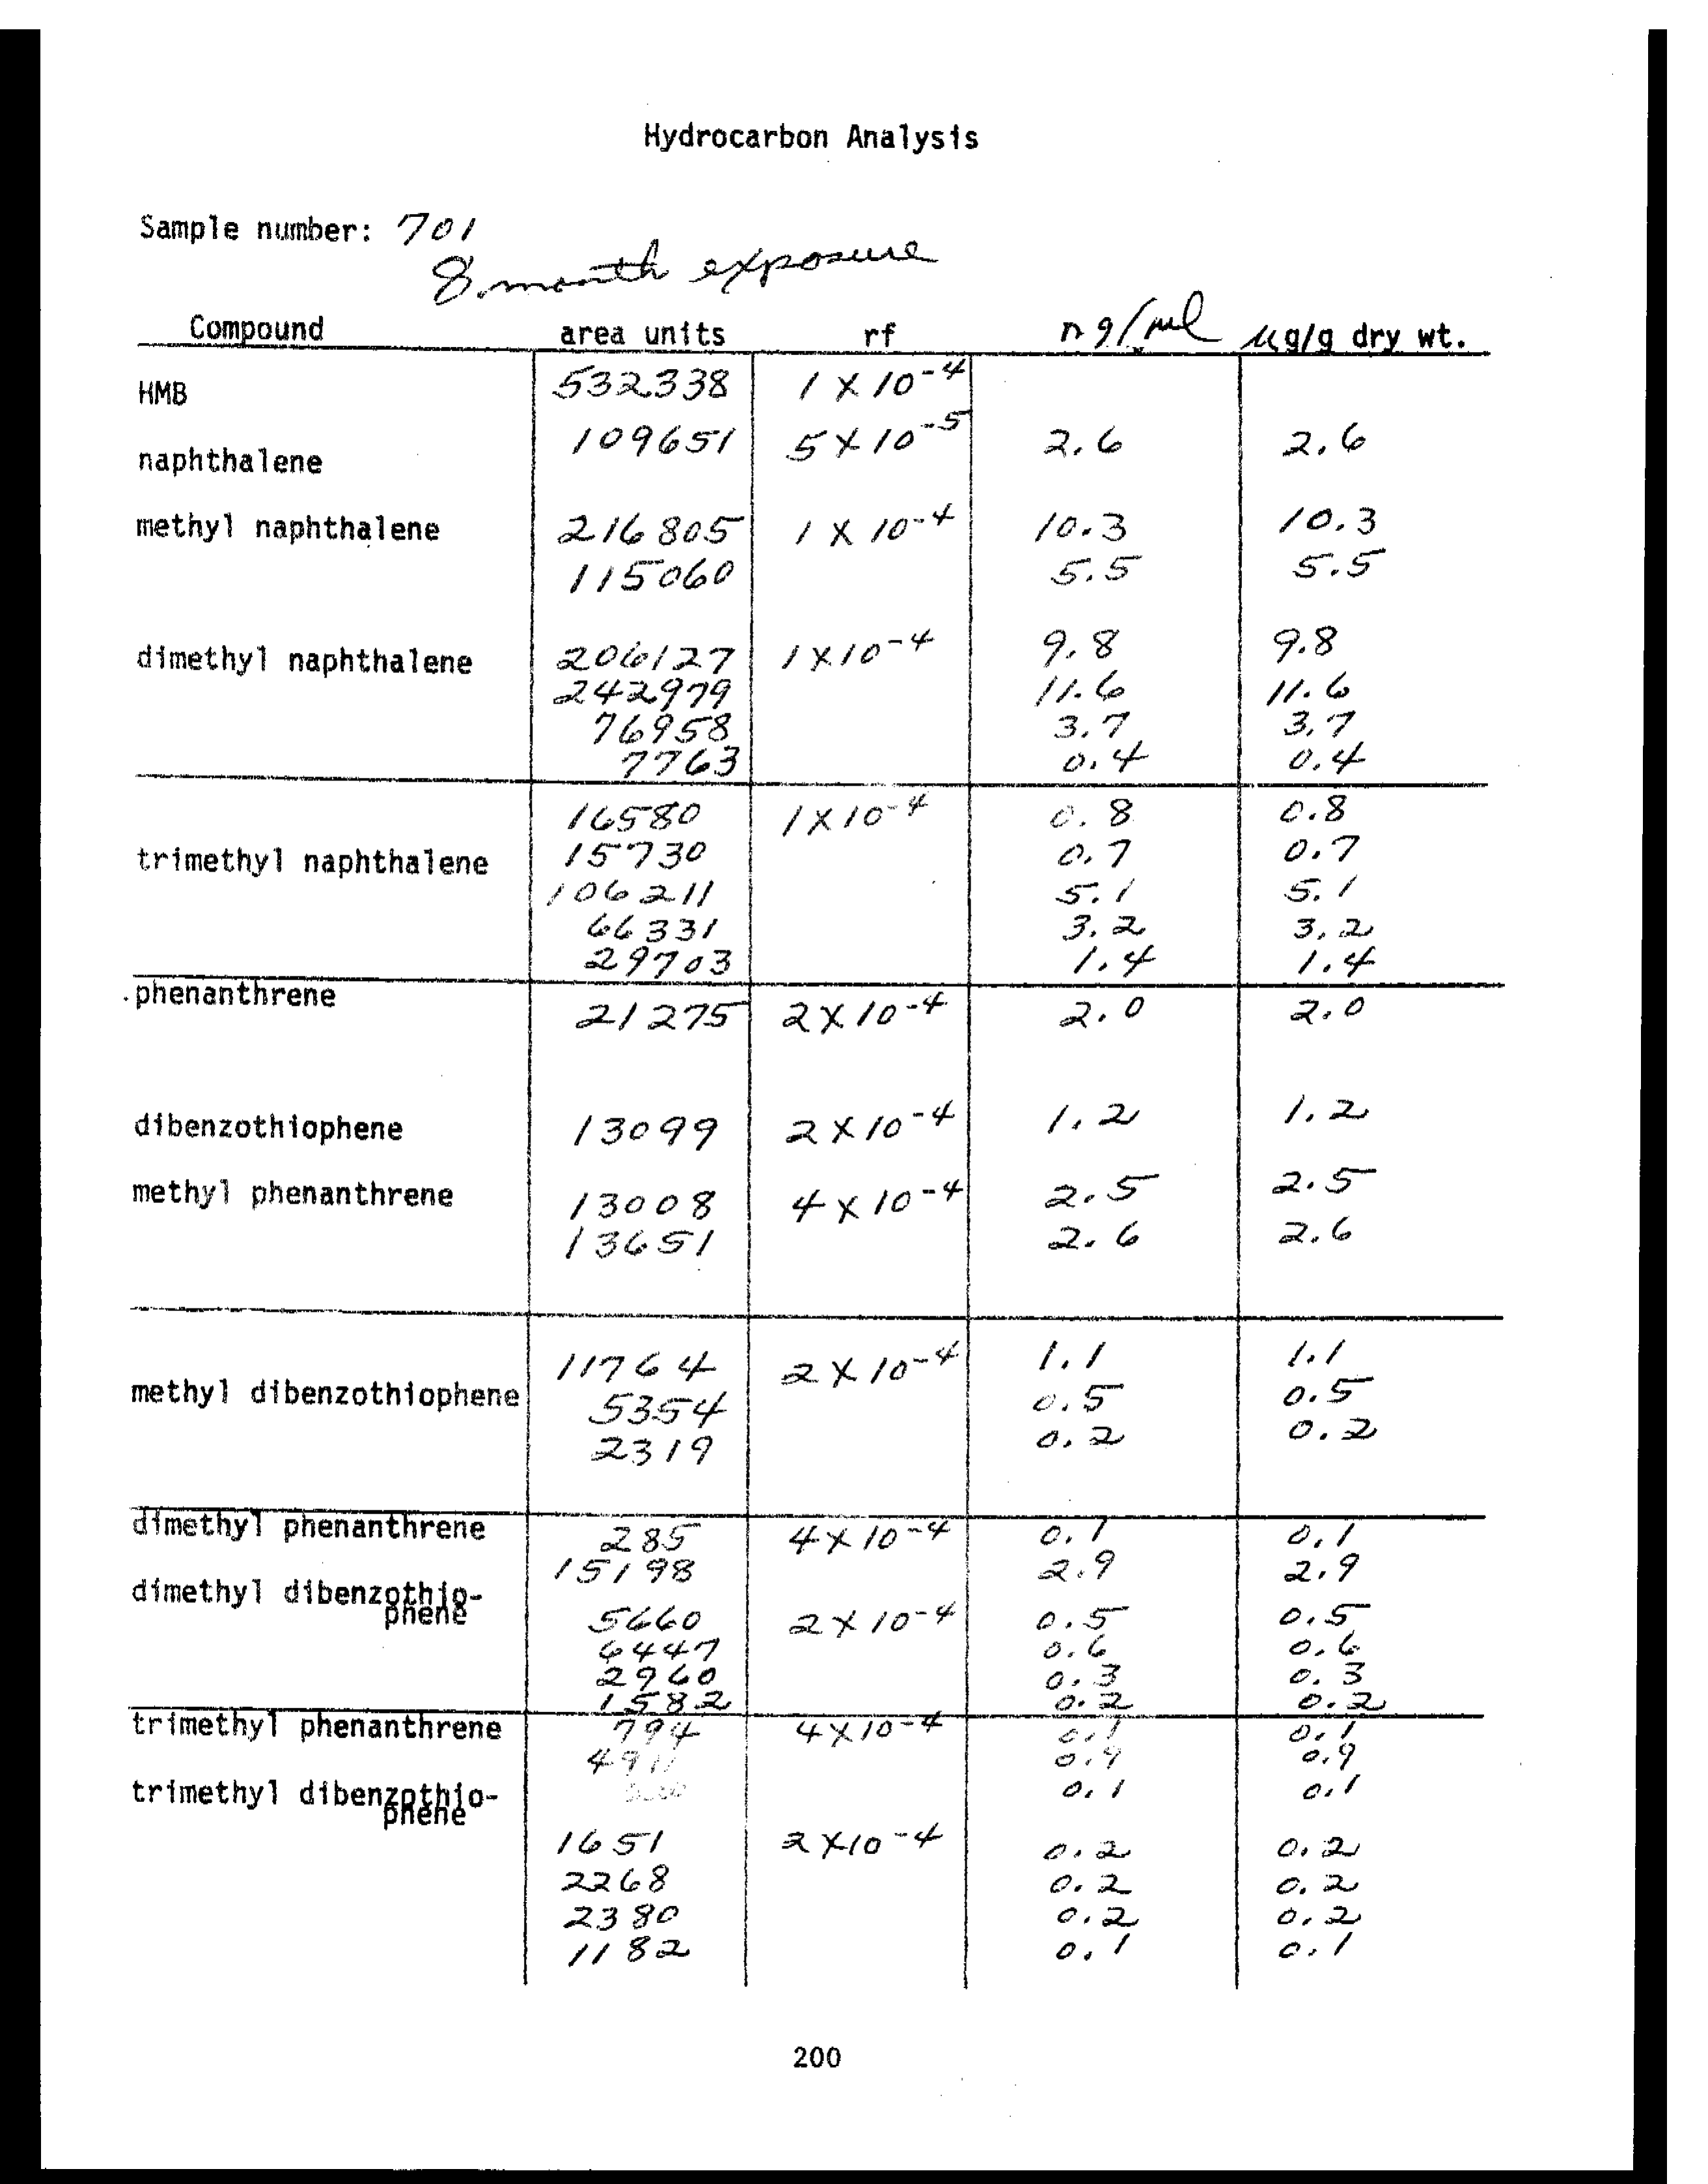 Hydrocarbon Analysis
Sample number: 701
8 month exposure
Compound area units rf ng/µl µg/g dry wt.
HMB 532338 1 X 10-4
naphthalene 109651 5 X 10-5 2.6 2.6
methyl naphthalene 216805 1 X 10-4 10.3 10.3
115060 5.5 5.5
dimethyl naphthalene 206127 1 X 10-4 9.8 9.8
242979 11.6 11.6
76958 3.7 3.7
7763 0.4 0.4
16580 1 X 10-4 0.8 0.8
trimethyl naphthalene 15730 0.7 0.7
106211 5.1 5.1
66331 3.2 3.2
29703 1.4 1.4
phenanthrene 21275 2 X 10-4 2.0 2.0
dibenzothiophene 13099 2 X 10-4 1.2 1.2
methyl phenanthrene 13008 4 X 10-4 2.5 2.5
13651 2.6 2.6
11764 2 X 10-4 1.1 1.1
methyl dibenzothiophene 5354 0.5 0.5
2319 0.2 0.2
dimethyl phenanthrene 285 4 X 10-4 0.1 0.1
15198 2.9 2.9
dimethyl dibenzothio-
phene 5660 2 X 10-4 0.5 0.5
6447 0.6 0.6
2960 0.3 0.3
1582 0.2 0.2
trimethyl phenanthrene 794 4 X 10-4 0.1 0.1
4911 0.9 0.9
trimethyl dibenzothio- 0.1 0.1
phene
1651 2 X 10-4 0.2 0.2
2268 0.2 0.2
2380 0.2 0.2
1182 0.1 0.1
200